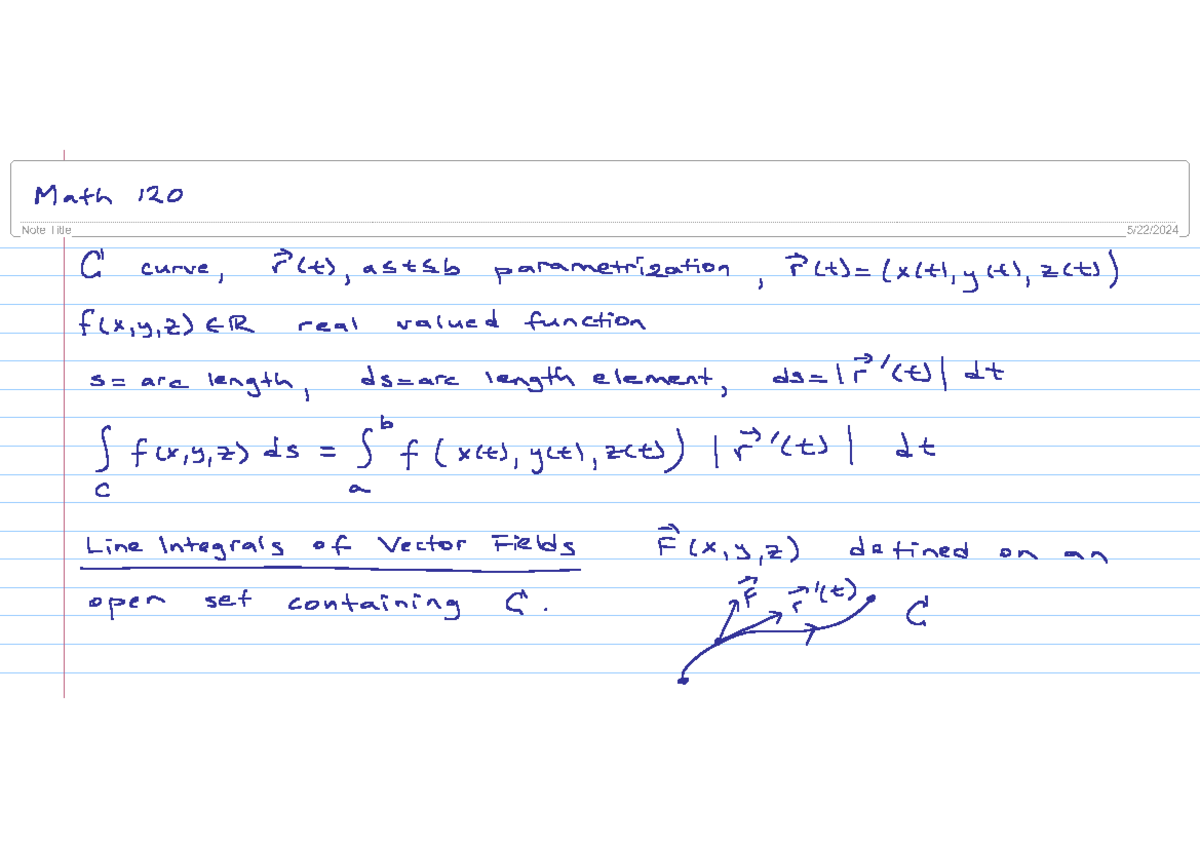 Math 120
Note Title
5/22/2024
C curve, r⃗(t), a≤t≤b parametrization, r⃗(t)=(x(t),y(t),z(t))
f(x,y,z)∈ℝ real valued function
s= arc length, ds=arc length element, ds=|r⃗'(t)| dt
∫_C f(x,y,z) ds = ∫_a^b f(x(t),y(t),z(t)) |r⃗'(t)| dt
Line Integrals of Vector Fields F⃗(x,y,z) defined on an
open set containing C.
F⃗ r⃗'(t) C